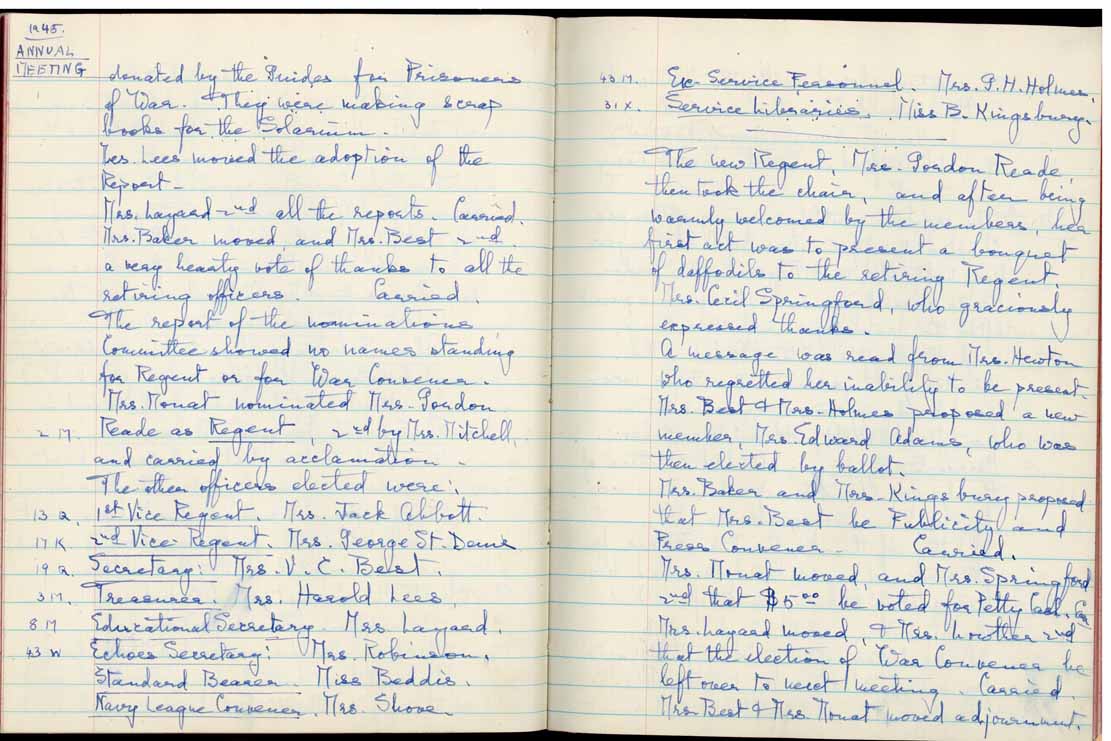 1945.
ANNUAL
MEETING
donated by the Guides for Prisoners
of War. They were making scrap
books for the Solarium.
Mrs. Lees moved the adoption of the
Report -
Mrs. Layard 2nd all the reports. Carried.
Mrs. Baker moved, and Mrs. Best 2nd
a very hearty vote of thanks to all the
retiring officers. Carried.
The report of the nominations
Committee showed no names standing
for Regent or for War Convener.
Mrs. Mouat nominated Mrs. Gordon
2 M. Reade as Regent, 2nd by Mrs. Mitchell,
and carried by acclamation -
The other officers elected were:
13 Q. 1st Vice Regent. Mrs. Jack Abbott.
17 K. 2nd Vice Regent. Mrs. George St. Denis
19 Q. Secretary: Mrs. V. C. Best.
3 M. Treasurer. Mrs. Harold Lees.
8 M Educational Secretary. Mrs. Layard.
43 W Echoes Secretary: Mrs. Robinson.
Standard Bearer. Miss Beddis.
Navy League Convener. Mrs. Shove
43 M. Ex-Service Personnel. Mrs. G. H. Holmes.
31 X. Service Libraries. Miss B. Kingsbury.
The new Regent, Mrs. Gordon Reade,
then took the chair, and after being
warmly welcomed by the members, her
first act was to present a bouquet
of daffodils to the retiring Regent,
Mrs. Cecil Springford, who graciously
expressed thanks.
A message was read from Mrs. Hewton
who regretted her inability to be present.
Mrs. Best & Mrs. Holmes proposed a new
member, Mrs. Edward Adams, who was
then elected by ballot.
Mrs. Baker and Mrs. Kingsbury proposed
that Mrs. Best be Publicity and
Press Convener - Carried.
Mrs. Mouat moved, and Mrs. Springford
2nd that $5.00 be voted for Petty Cash.
Mrs. Layard moved, & Mrs. Lowther 2nd
that the election of War Convener be
left over to next meeting. Carried.
Mrs. Best & Mrs. Mouat moved adjournment.